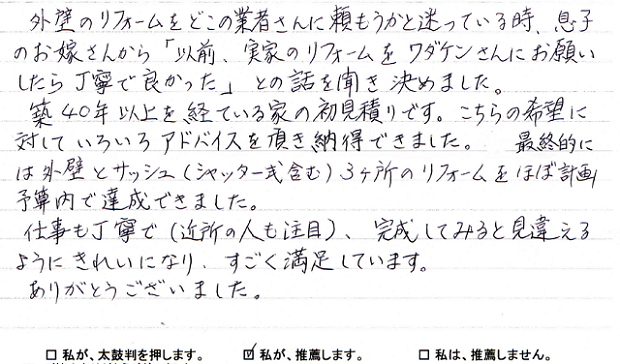 外壁のリフォームをどこの業者さんに頼もうかと迷っている時、息子
のお嫁さんから「以前、実家のリフォームをワダケンさんにお願い
したら丁寧で良かった」との話を聞き決めました。
築40年以上を経ている家の初見積りです。こちらの希望に
対していろいろアドバイスを頂き納得できました。　最終的に
は外壁とサッシュ(シャッター式含む)3ヶ所のリフォームをほぼ計画
予算内で達成できました。
仕事も丁寧で(近所の人も注目)、完成してみると見違える
ようにきれいになり、すごく満足しています。
ありがとうございました。
□ 私が、太鼓判を押します。　☑ 私が、推薦します。　□ 私は、推薦しません。